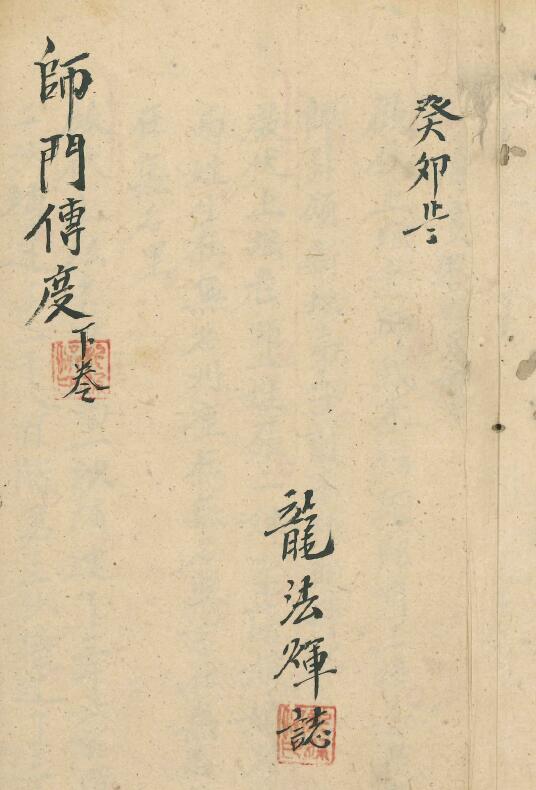 癸卯歲
師門傳度
下卷
龍法輝誌